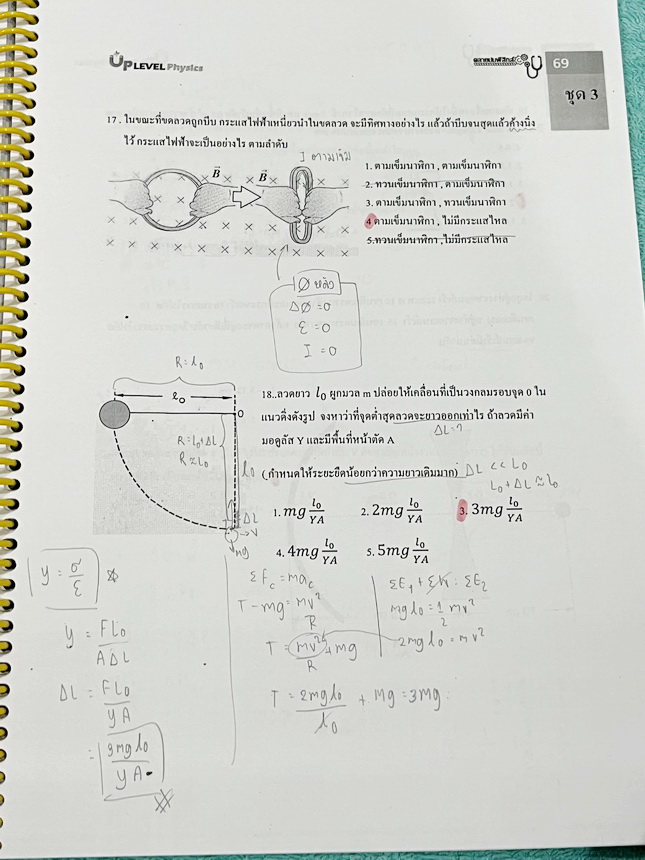 UP LEVEL Physics
ตลาดปมฟิสิกส์
69
ชุด 3
17. ในขณะที่ขดลวดถูกบีบ กระแสไฟฟ้าเหนี่ยวนำในขดลวด จะมีทิศทางอย่างไร แล้วถ้าบีบจนสุดแล้วค้างนิ่ง
ไว้ กระแสไฟฟ้าจะเป็นอย่างไร ตามลำดับ
I ตามเข็ม
B B
1. ตามเข็มนาฬิกา , ตามเข็มนาฬิกา
2. ทวนเข็มนาฬิกา , ตามเข็มนาฬิกา
3. ตามเข็มนาฬิกา , ทวนเข็มนาฬิกา
4 ตามเข็มนาฬิกา , ไม่มีกระแสไหล
5. ทวนเข็มนาฬิกา , ไม่มีกระแสไหล
Δφ = 0
ε = 0
I = 0
R = l₀
l₀
0
R = l₀ + ΔL
R ≈ l₀
l₀
ΔL
V
mg
18..ลวดยาว l₀ ผูกมวล m ปล่อยให้เคลื่อนที่เป็นวงกลมรอบจุด 0 ใน
แนวดิ่งดังรูป จงหาว่าที่จุดต่ำสุดลวดจะยาวออกเท่าไร ถ้าลวดมีค่า
มอดูลัส Y และมีพื้นที่หน้าตัด A
ΔL = ?
(กำหนดให้ระยะยืดน้อยกว่าความยาวเดิมมาก) ΔL << L₀
L₀ + ΔL ≈ l₀
1. mg l₀/YA 2. 2mg l₀/YA 3. 3mg l₀/YA
4. 4mg l₀/YA 5. 5mg l₀/YA
Y = σ/ε
Y = FL₀/AΔL
ΔL = FL₀/YA
= 3mgl₀/YA
ΣF_c = ma_c
T - mg = mv²/R
T = mv²/R + mg
T = 2mgl₀/l₀ + mg = 3mg
ΣE₁ + ΣW = ΣE₂
mgl₀ = 1/2 mv²
2mgl₀ = mv²